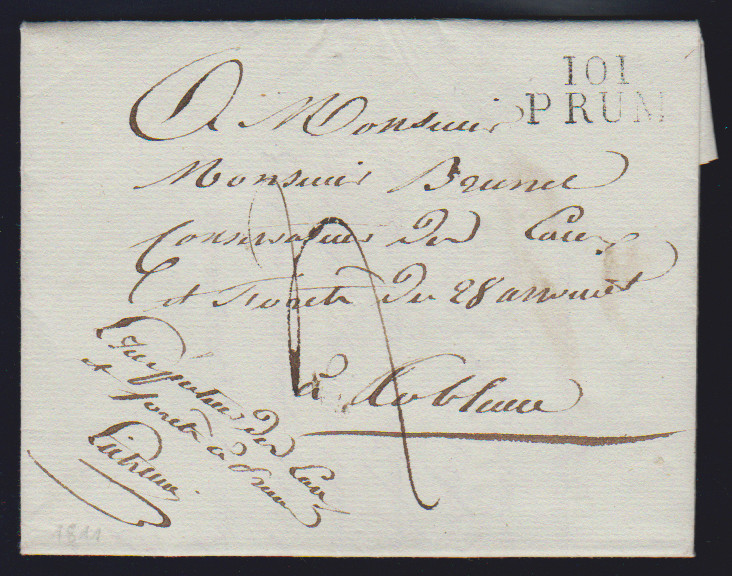 101
PRUM
A Monsieur
Monsieur Brunet
Conservateur des Eaux
et Forêts du 28 arrondist
à Coblence
L'inspecteur des Eaux
et forêts à Prum
1811